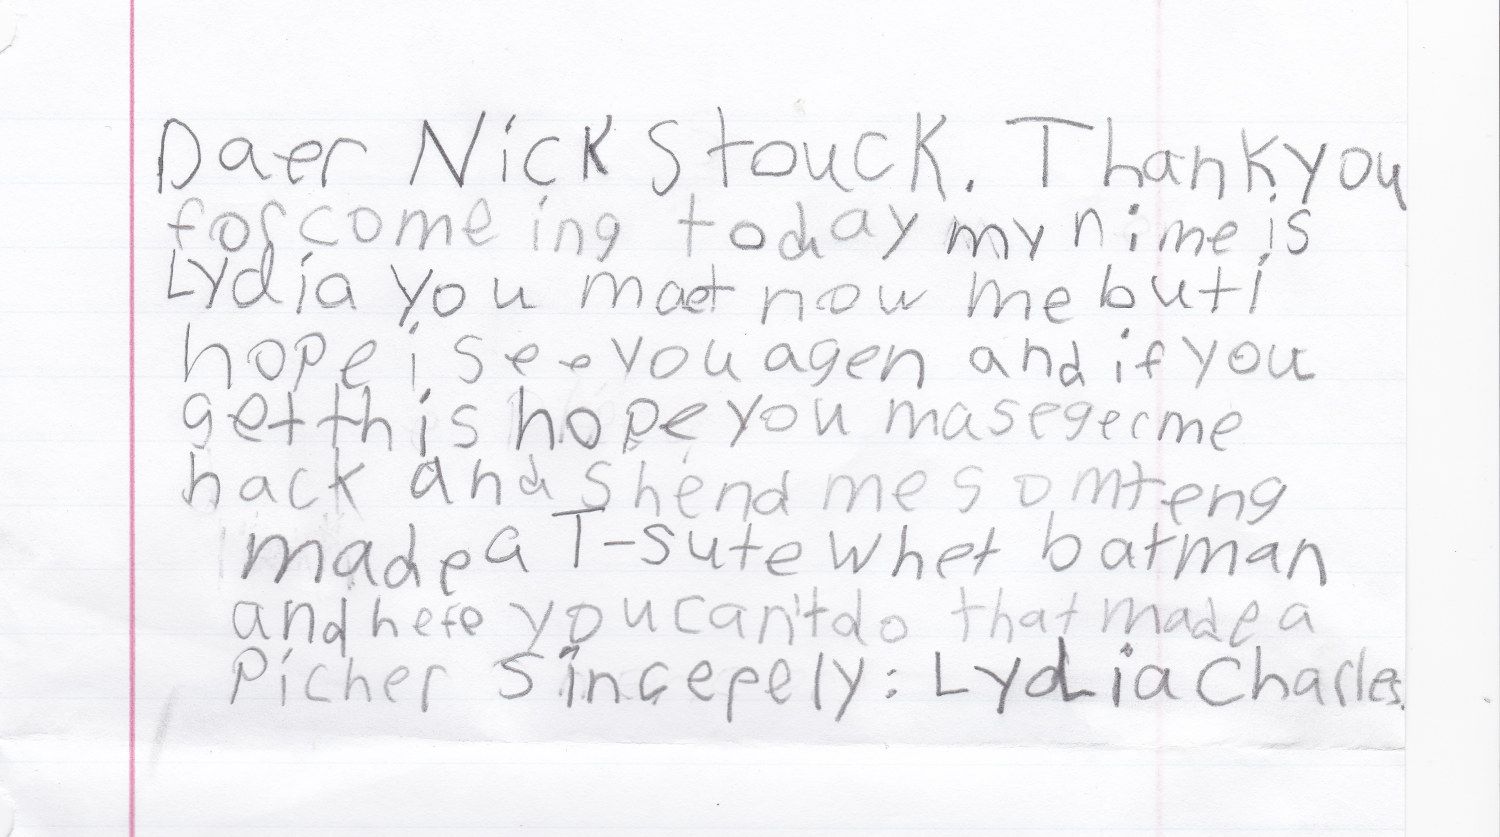 Daer Nick Stouck. Thank you
for come ing today my nime is
Lydia you maet now me but i
hope i see you agen and if you
get this hope you masegerme
back and shend me somteng
made a T-sute whet batman
and hefe you can't do that made a
Picher Sincepely: Lydia Charles.